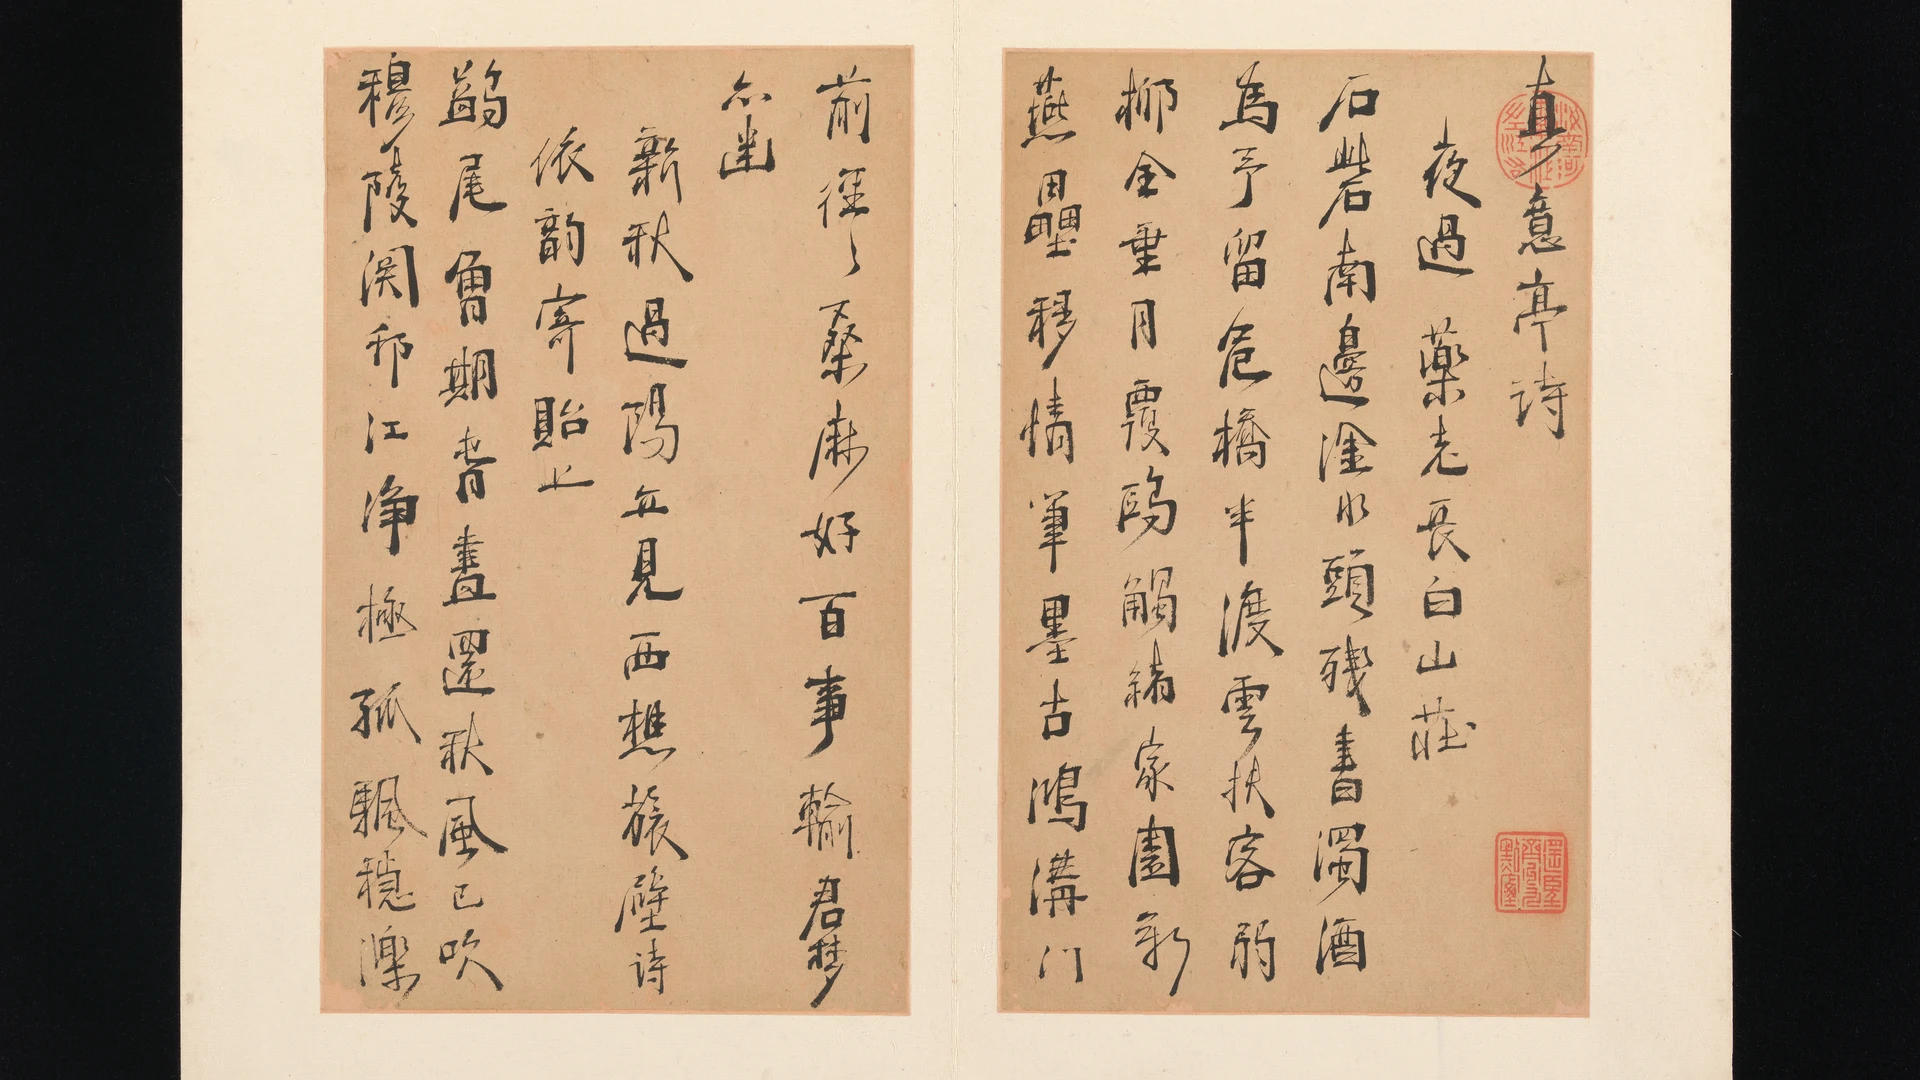 真意亭诗
夜過藥老長白山莊
石砦南邊塗水頭殘書濁酒
為予留危橋半渡雲扶客弱
柳全垂月覆鷗觸緒家園新
燕壘移情筆墨古鴻溝门
前徑々桑麻好百事輸君夢
亦
新秋過陽丘見西樵旅壁诗
依韵寄貽上
鷁尾曾期春晝還秋風已吹
穆陵関邗江净極孤颿穩濼